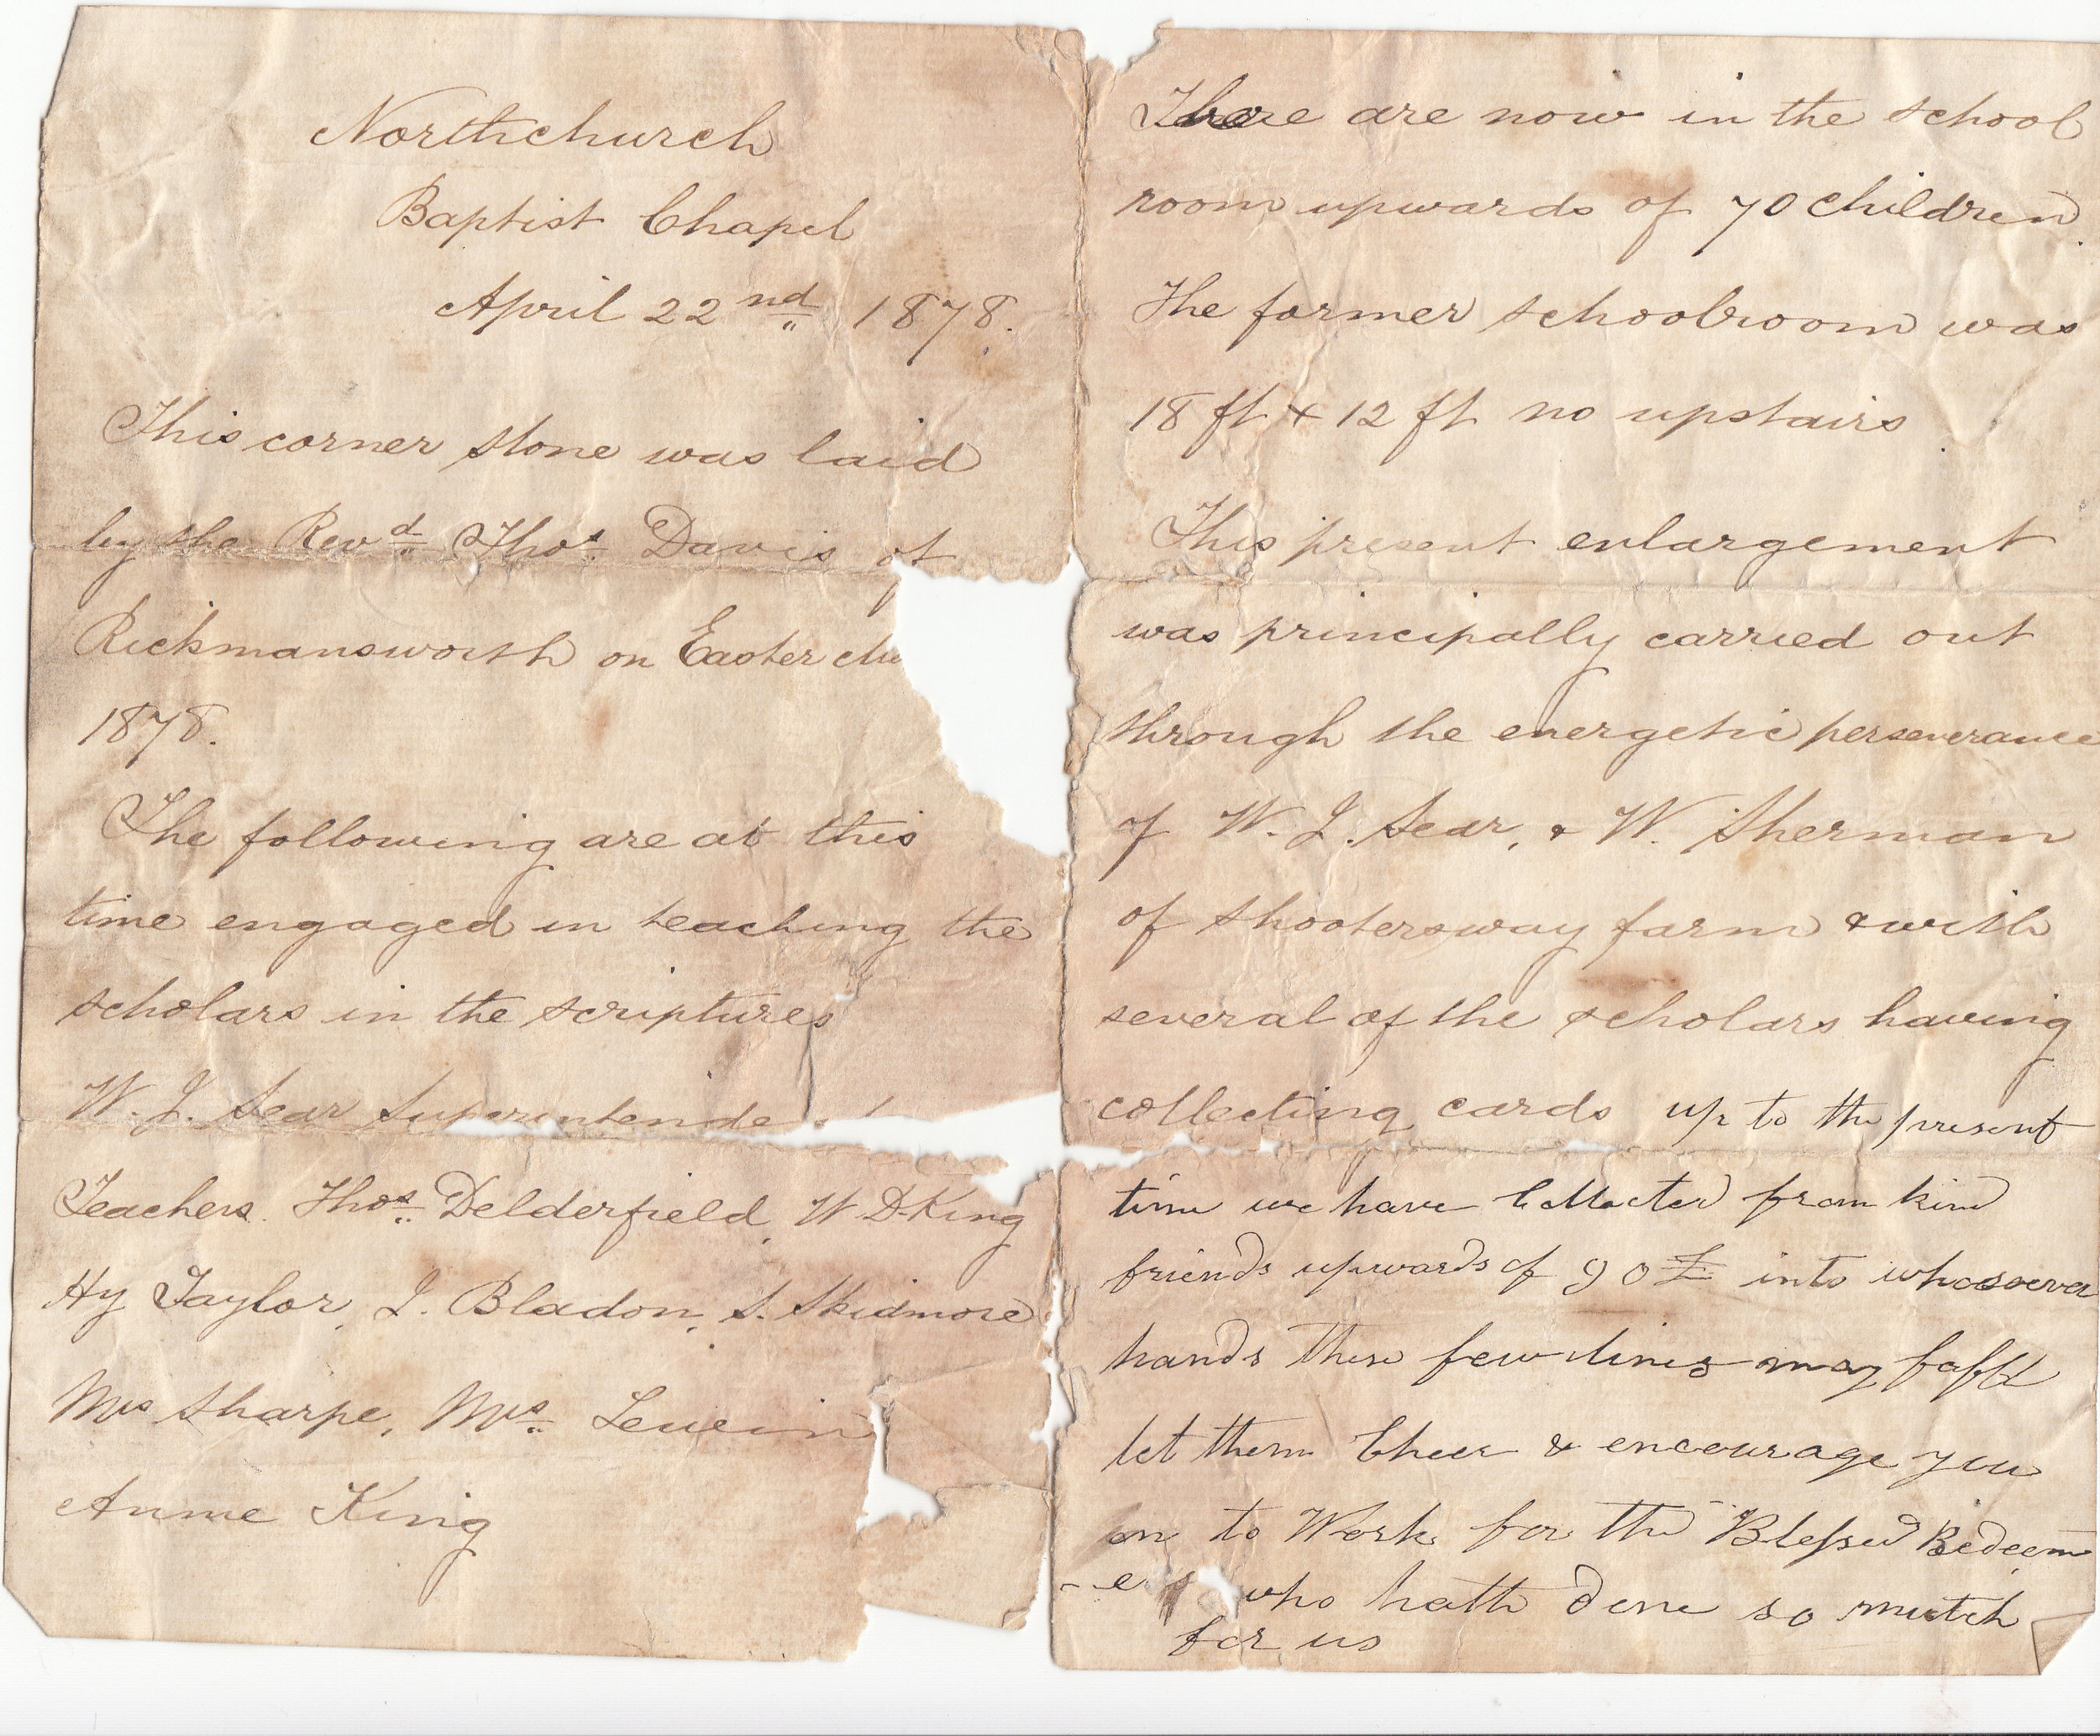 Northchurch
Baptist Chapel
April 22nd 1878.
This corner stone was laid
by the Revd Thos Davis of
Rickmansworth on Easter
1878.
The following are at this
time engaged in teaching the
scholars in the scriptures
W. J. Sear
Teachers. Thos Delderfield, W D King
Hy Taylor, J. Bladon, S. Skidmore
Mrs Sharpe, Mrs
Annie King
There are now in the school
room upwards of 70 children.
The former schoolroom was
18 ft x 12 ft no upstairs
This present enlargement
was principally carried out
through the energetic perseverance
of W. J. Sear, & W. Sherman
of Shootersway farm & with
several of the scholars having
collecting cards up to the present
time we have from kind
friends upwards of 90£ into whosoever
hands these few lines may
let them Cheer & encourage you
on to Work for the Blessed Redeem
-er who hath done so mutch
for us